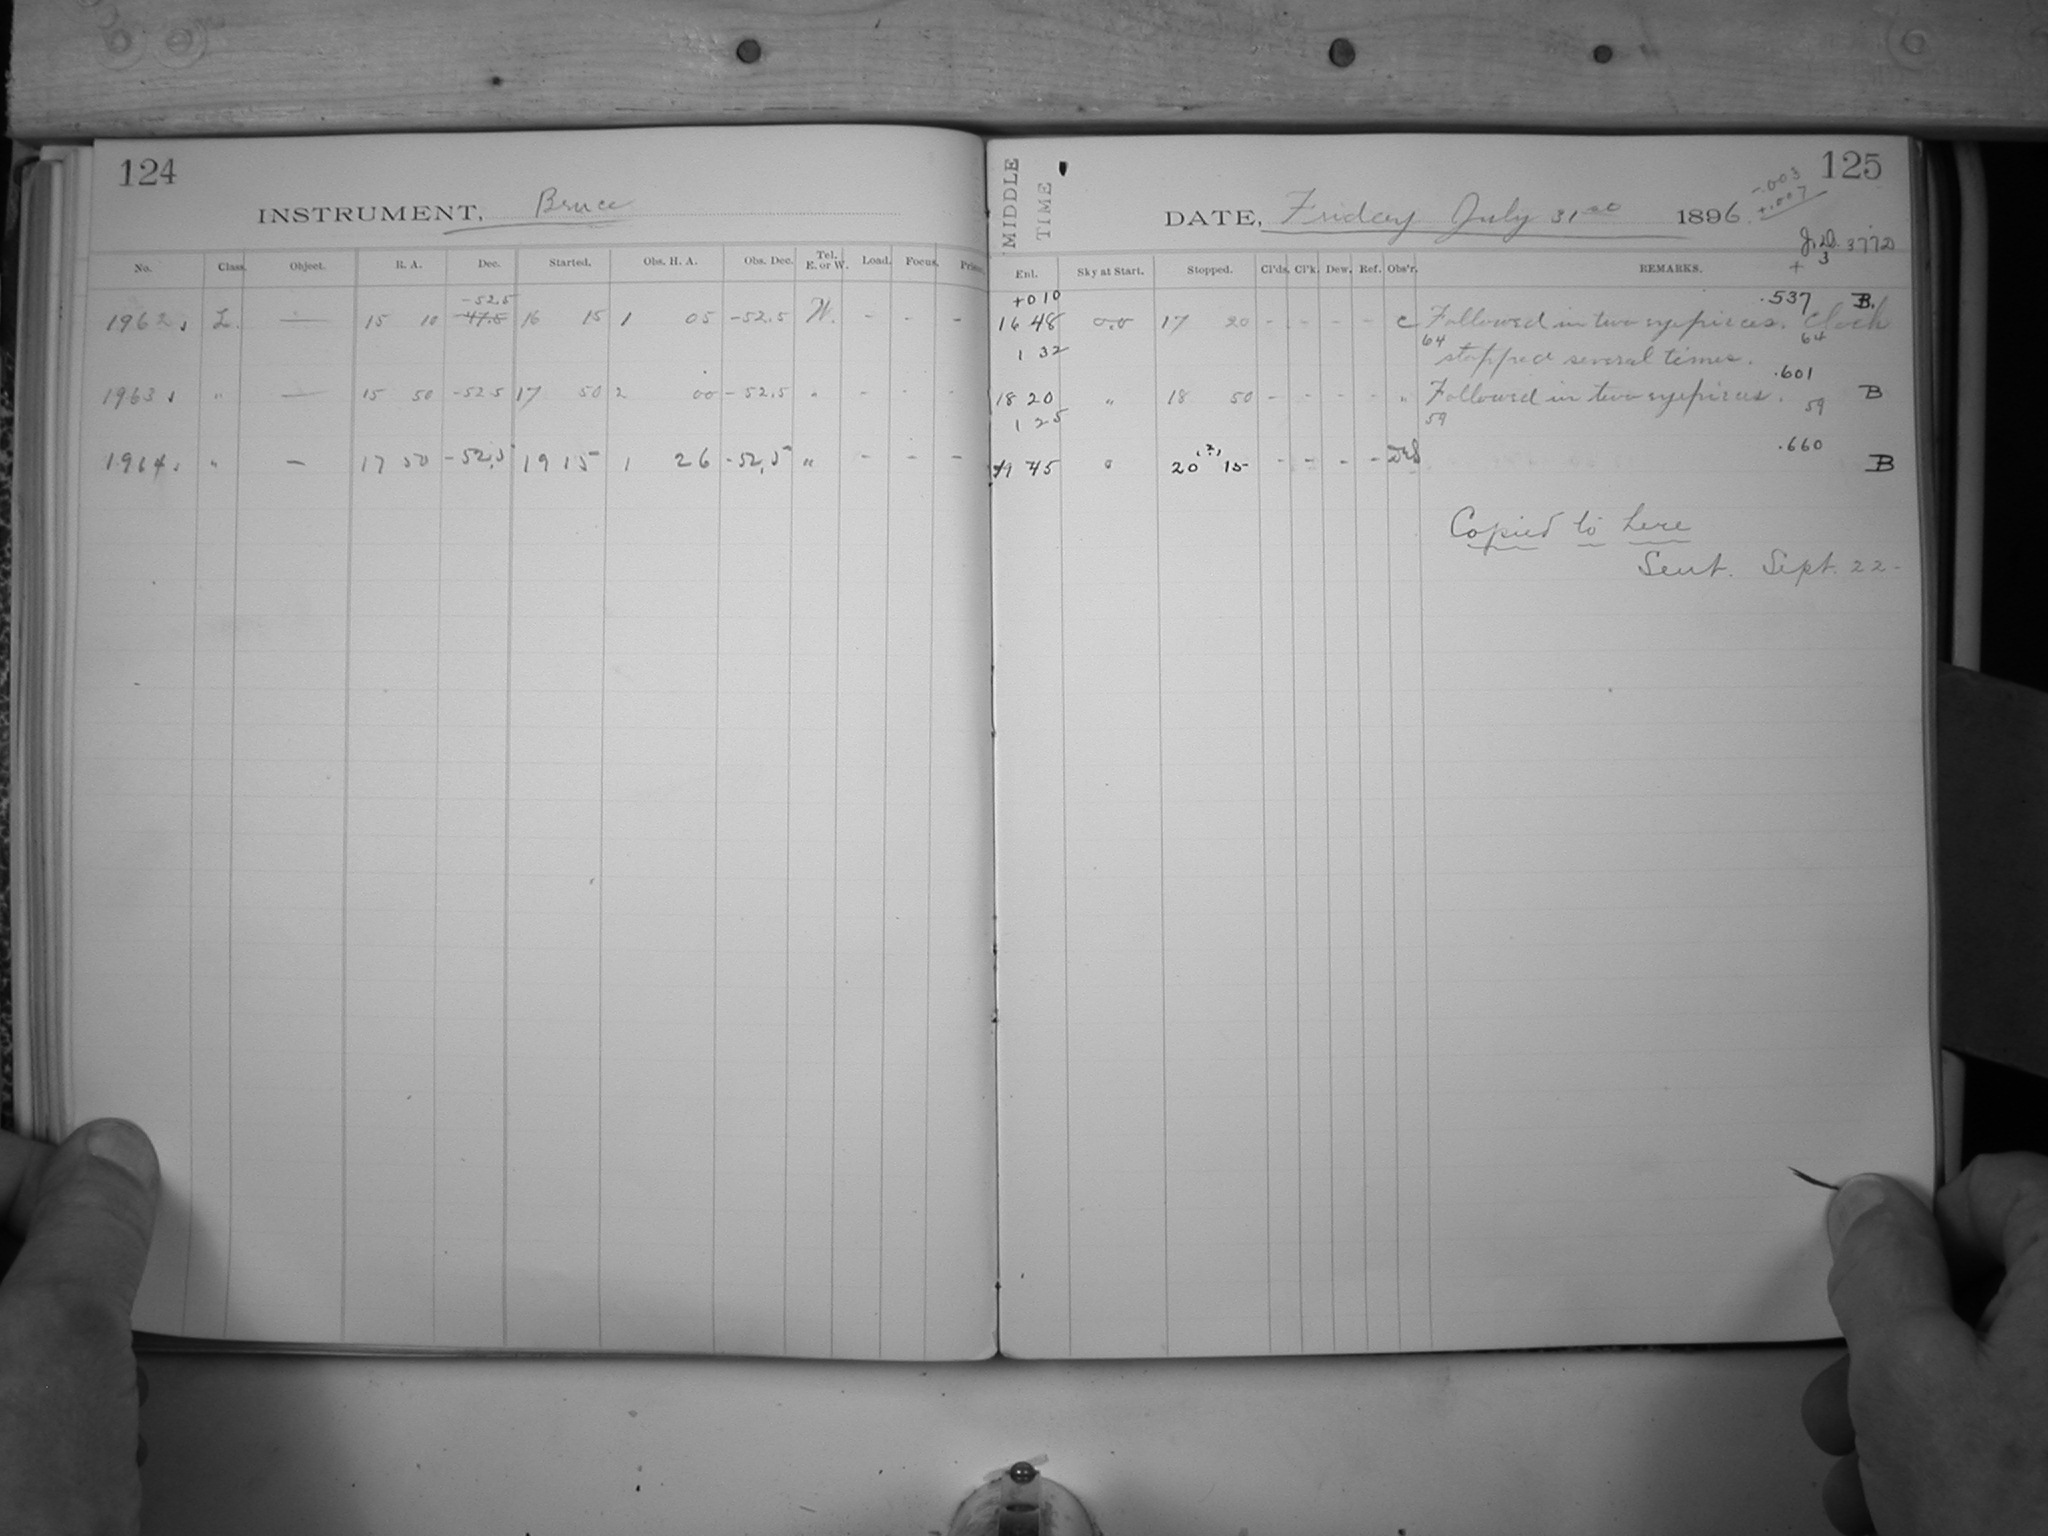 124
INSTRUMENT, Bruce
No. Class. Object. R. A. Dec. Started. Obs. H. A. Obs. Dec. Tel. E. or W. Load. Focus.
-52.5
1962 L. — 15 10 -47.5 16 15 1 05 -52.5 W. - - -
1963 " — 15 50 -52.5 17 50 2 00 -52.5 " - - -
1964 " — 17 50 -52.5 19 15 1 26 -52.5 " - - -
MIDDLE TIME
125
-.003
+.007
DATE, Friday July 31 1896
J.D. 3772
+ 3
Enl. Sky at Start. Stopped. Cl'ds. Cl'k. Dew. Ref. Obs'r. REMARKS.
+010 .537 B.
16 48 0.0 17 20 - - - - C Followed in two eyepieces. Clock
64 64
1 32 stopped several times.
.601
18 20 " 18 50 - - - - " Followed in two eyepieces. B
1 25 59 59
.660
(?)
19 45 " 20 15 - - - - B
Copied to here
Sent. Sept. 22-